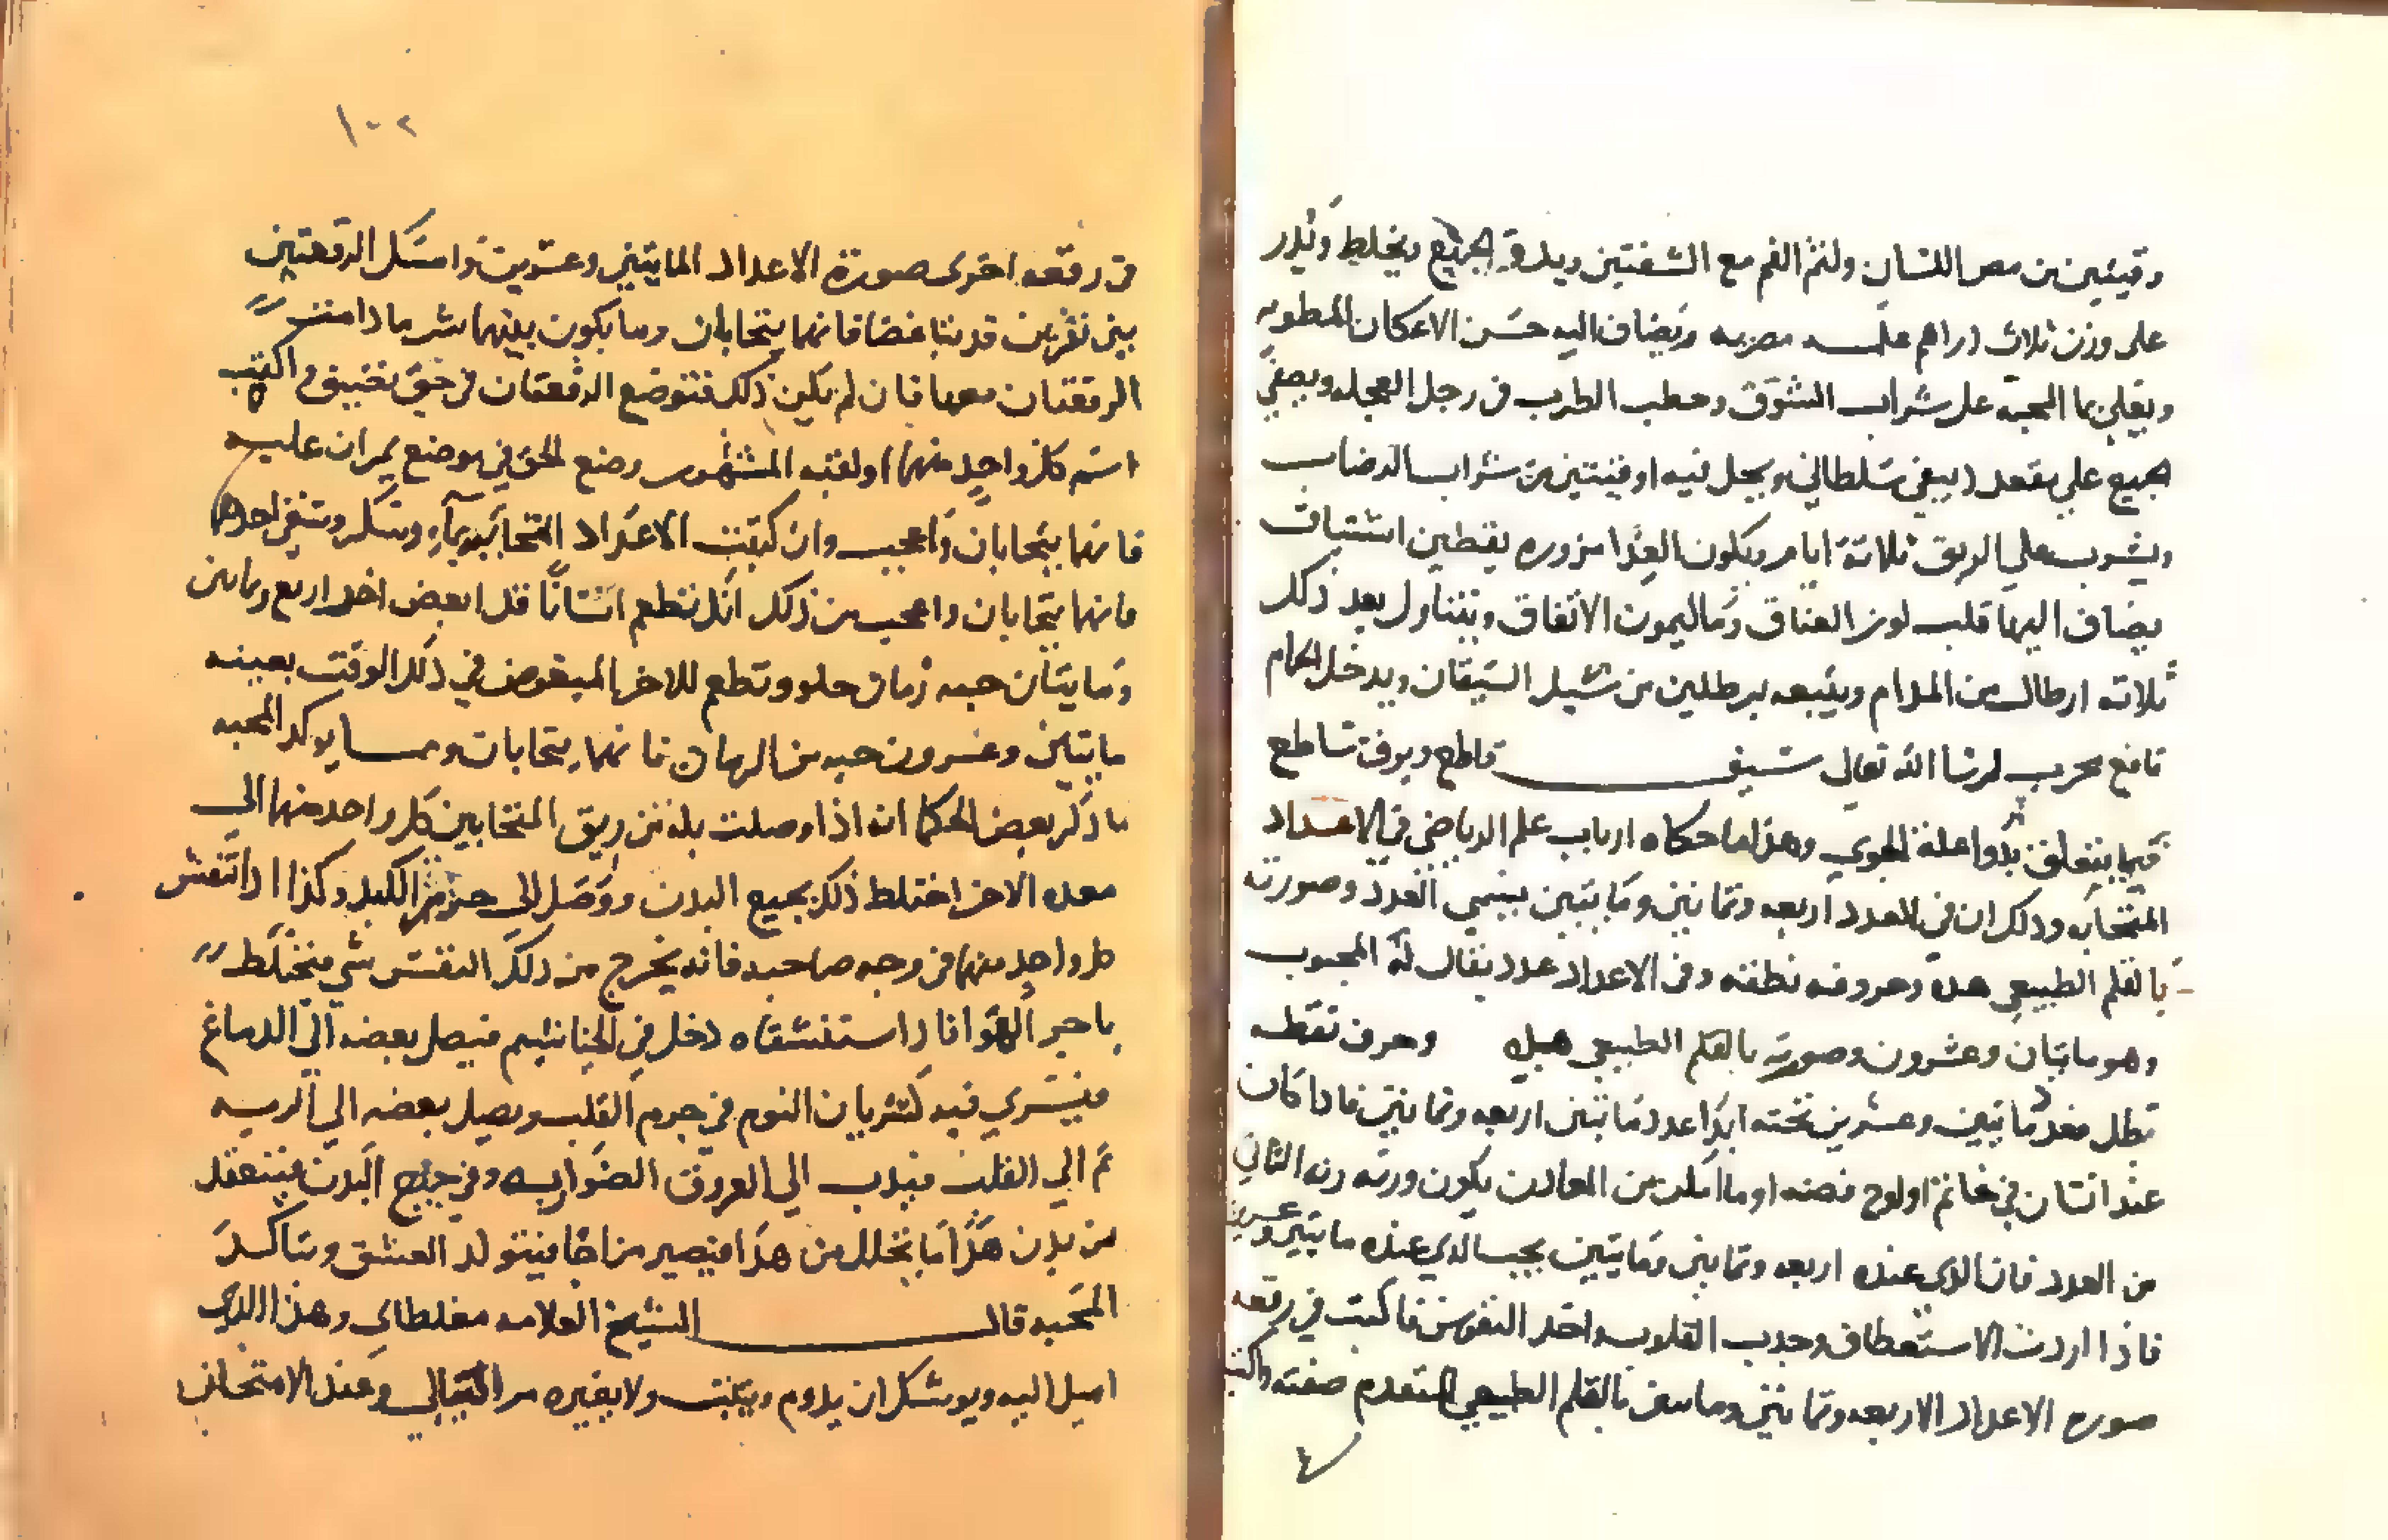 وقيتين من مص اللسان ولثم الفم مع الشفتين ويدق الجميع ويخلط
على وزن ثلاث دراهم علـــه مصريه ويضاف اليه حسن الاعكان المطويه
ويغلي بما المحبه على شراب الشوق وحطب الطرب في رجل العجله ويصفي
الجميع علي مقعد دبيقي سلطاني ويجعل فيه اوقيتين من شراب الرضاب
ويشرب علي الريق ثلاثة ايام ويكون الغدا مزوره يقطين اشتياق
يضاف اليها قلب لوز العناق وما ليمون الاتفاق ويتناول بعد ذلك
ثلاثه ارطال من المدام ويتبعه برطلين من شيل السيقان ويدخل الحمام
نافع مجرب ان شا الله تعالى سيف قاطع وبرق ساطع
فيما يتعلق بدوا علة الجوي وهذا ما حكاه ارباب علم الرياضي في الاعداد
المتحابه وذلك ان في العدد اربعه وثمانين ومايتين يسمي العدد وصورته
بالقلم الطبيعي هده وحروفه نطفته وفي الاعداد عدد يقال له المحبوب
وهو مايتان وعشرون وصورته بالقلم الطبيعي هده وحرف نقطه
تطل فعدد مايتين وعشرين تحته ابدا عدد مايتين اربعه وثمانين فاذا كان
عند انسان في خاتم او لوح فضه او ما امكن من المعادن يكون وزنه زنه الثاني
من العدد فان الذي عنده اربعه وثمانين ومايتين يحب الذي عنده مايتين وعشرين
فاذا اردت الاستعطاف وجدب القلوب واخد النفوس فاكتب في رقعه
صوره الاعداد الاربعه وثمانين ومايتين بالقلم الطبيعي المتقدم صفته واكتب
١٠٢
في رقعه اخرى صورة الاعداد المايتين وعشرين وامسك الرقعتين
بين نفرين قد تباغضا فانهما يتحابان وما يكون بينهما شر ما دامت
الرقعتان معهما فان لم يكن ذلك فتوضع الرقعتان في حق نحتيق واكتب
اسم كل واحد منهما او لقبه المشهور وضع الحق في موضع يمران عليه
فانهما يتحابان واعجب وان كتبت الاعداد المتحابه بمآء وسكر وسقي احدهما
فانهما يتحابان واعجب من ذلك انك تطعم انسانًا قد ابغض اخر اربع وثمانين
ومايتان حبه رمان حلو وتطعم للاخر المبغوض في ذلك الوقت بعينه
مايتين وعشرون حبه من الرمان فانهما يتحابان ومما يوكد المحبه
ما ذكر بعض الحكما انه اذا وصلت بله من ريق المتحابين كل واحد منهما الي
معده الاخر اختلط ذلك بجميع البدن ووصل الى جرم الكبد وكذا ادا تنفس
كل واحد منهما في وجه صاحبه فانه يخرج من ذلك النفس شي مختلط
باجزا الهوا فادا استنشقاه دخل في الخياشيم فيصل بعضه الي الدماغ
فيسري فيه كسريان النوم في جرم القلب ويصل بعضه الي الريه
ثم الي القلب فيدب الي العروق الضواربه وفي جميع البدن فينعقد
من بدن هذا ما تحلل من هذا فيصير مزاجًا فيتولد العشق وتتاكد
المحبه قال الشيخ العلامه مغلطاي وهذا الذي
اميل اليه ويوشك ان يدوم ويثبت ولا يغيره مر الليالي وعند الامتحان